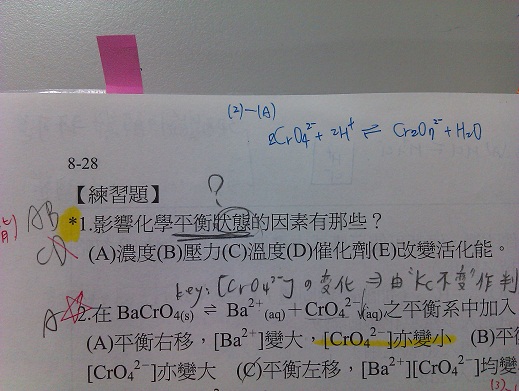 (2)-(A)
2CrO₄²⁻ + 2H⁺ ⇌ Cr₂O₇²⁻ + H₂O
8-28
【練習題】
?
AB *1.影響化學平衡狀態的因素有那些?
CD (A)濃度(B)壓力(C)溫度(D)催化劑(E)改變活化能。
key: [CrO₄²⁻]の變化 ⇒ 由"Kc不變"作判
A 2.在 BaCrO₄₍s₎ ⇌ Ba²⁺(aq) + CrO₄²⁻(aq)之平衡系中加入
(A)平衡右移,[Ba²⁺]變大,[CrO₄²⁻]亦變小 (B)平
[CrO₄²⁻]亦變大 (C)平衡左移,[Ba²⁺][CrO₄²⁻]均變